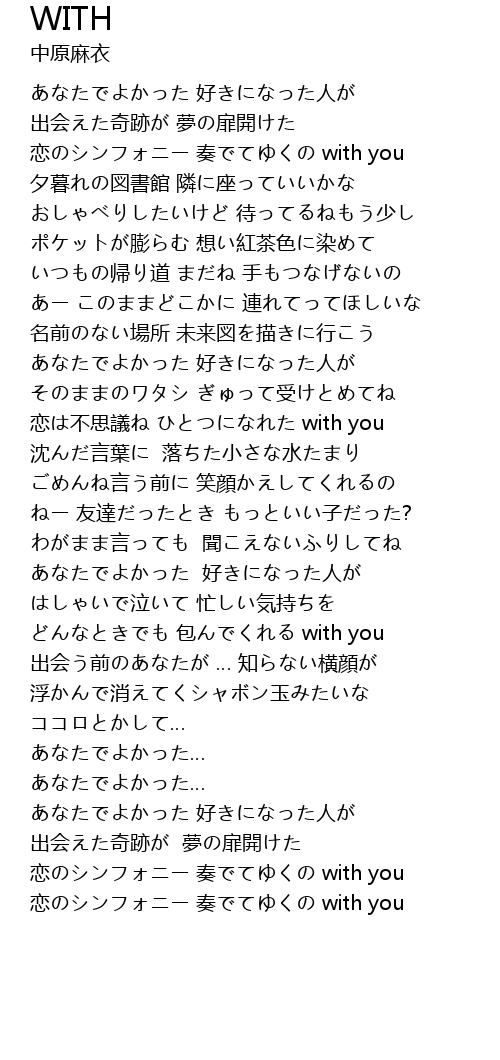 WITH
中原麻衣
あなたでよかった 好きになった人が
出会えた奇跡が 夢の扉開けた
恋のシンフォニー 奏でてゆくの with you
夕暮れの図書館 隣に座っていいかな
おしゃべりしたいけど 待ってるねもう少し
ポケットが膨らむ 想い紅茶色に染めて
いつもの帰り道 まだね 手もつなげないの
あー このままどこかに 連れてってほしいな
名前のない場所 未来図を描きに行こう
あなたでよかった 好きになった人が
そのままのワタシ ぎゅって受けとめてね
恋は不思議ね ひとつになれた with you
沈んだ言葉に  落ちた小さな水たまり
ごめんね言う前に 笑顔かえしてくれるの
ねー 友達だったとき もっといい子だった?
わがまま言っても  聞こえないふりしてね
あなたでよかった  好きになった人が
はしゃいで泣いて 忙しい気持ちを
どんなときでも 包んでくれる with you
出会う前のあなたが ... 知らない横顔が
浮かんで消えてくシャボン玉みたいな
ココロとかして...
あなたでよかった...
あなたでよかった...
あなたでよかった 好きになった人が
出会えた奇跡が  夢の扉開けた
恋のシンフォニー 奏でてゆくの with you
恋のシンフォニー 奏でてゆくの with you